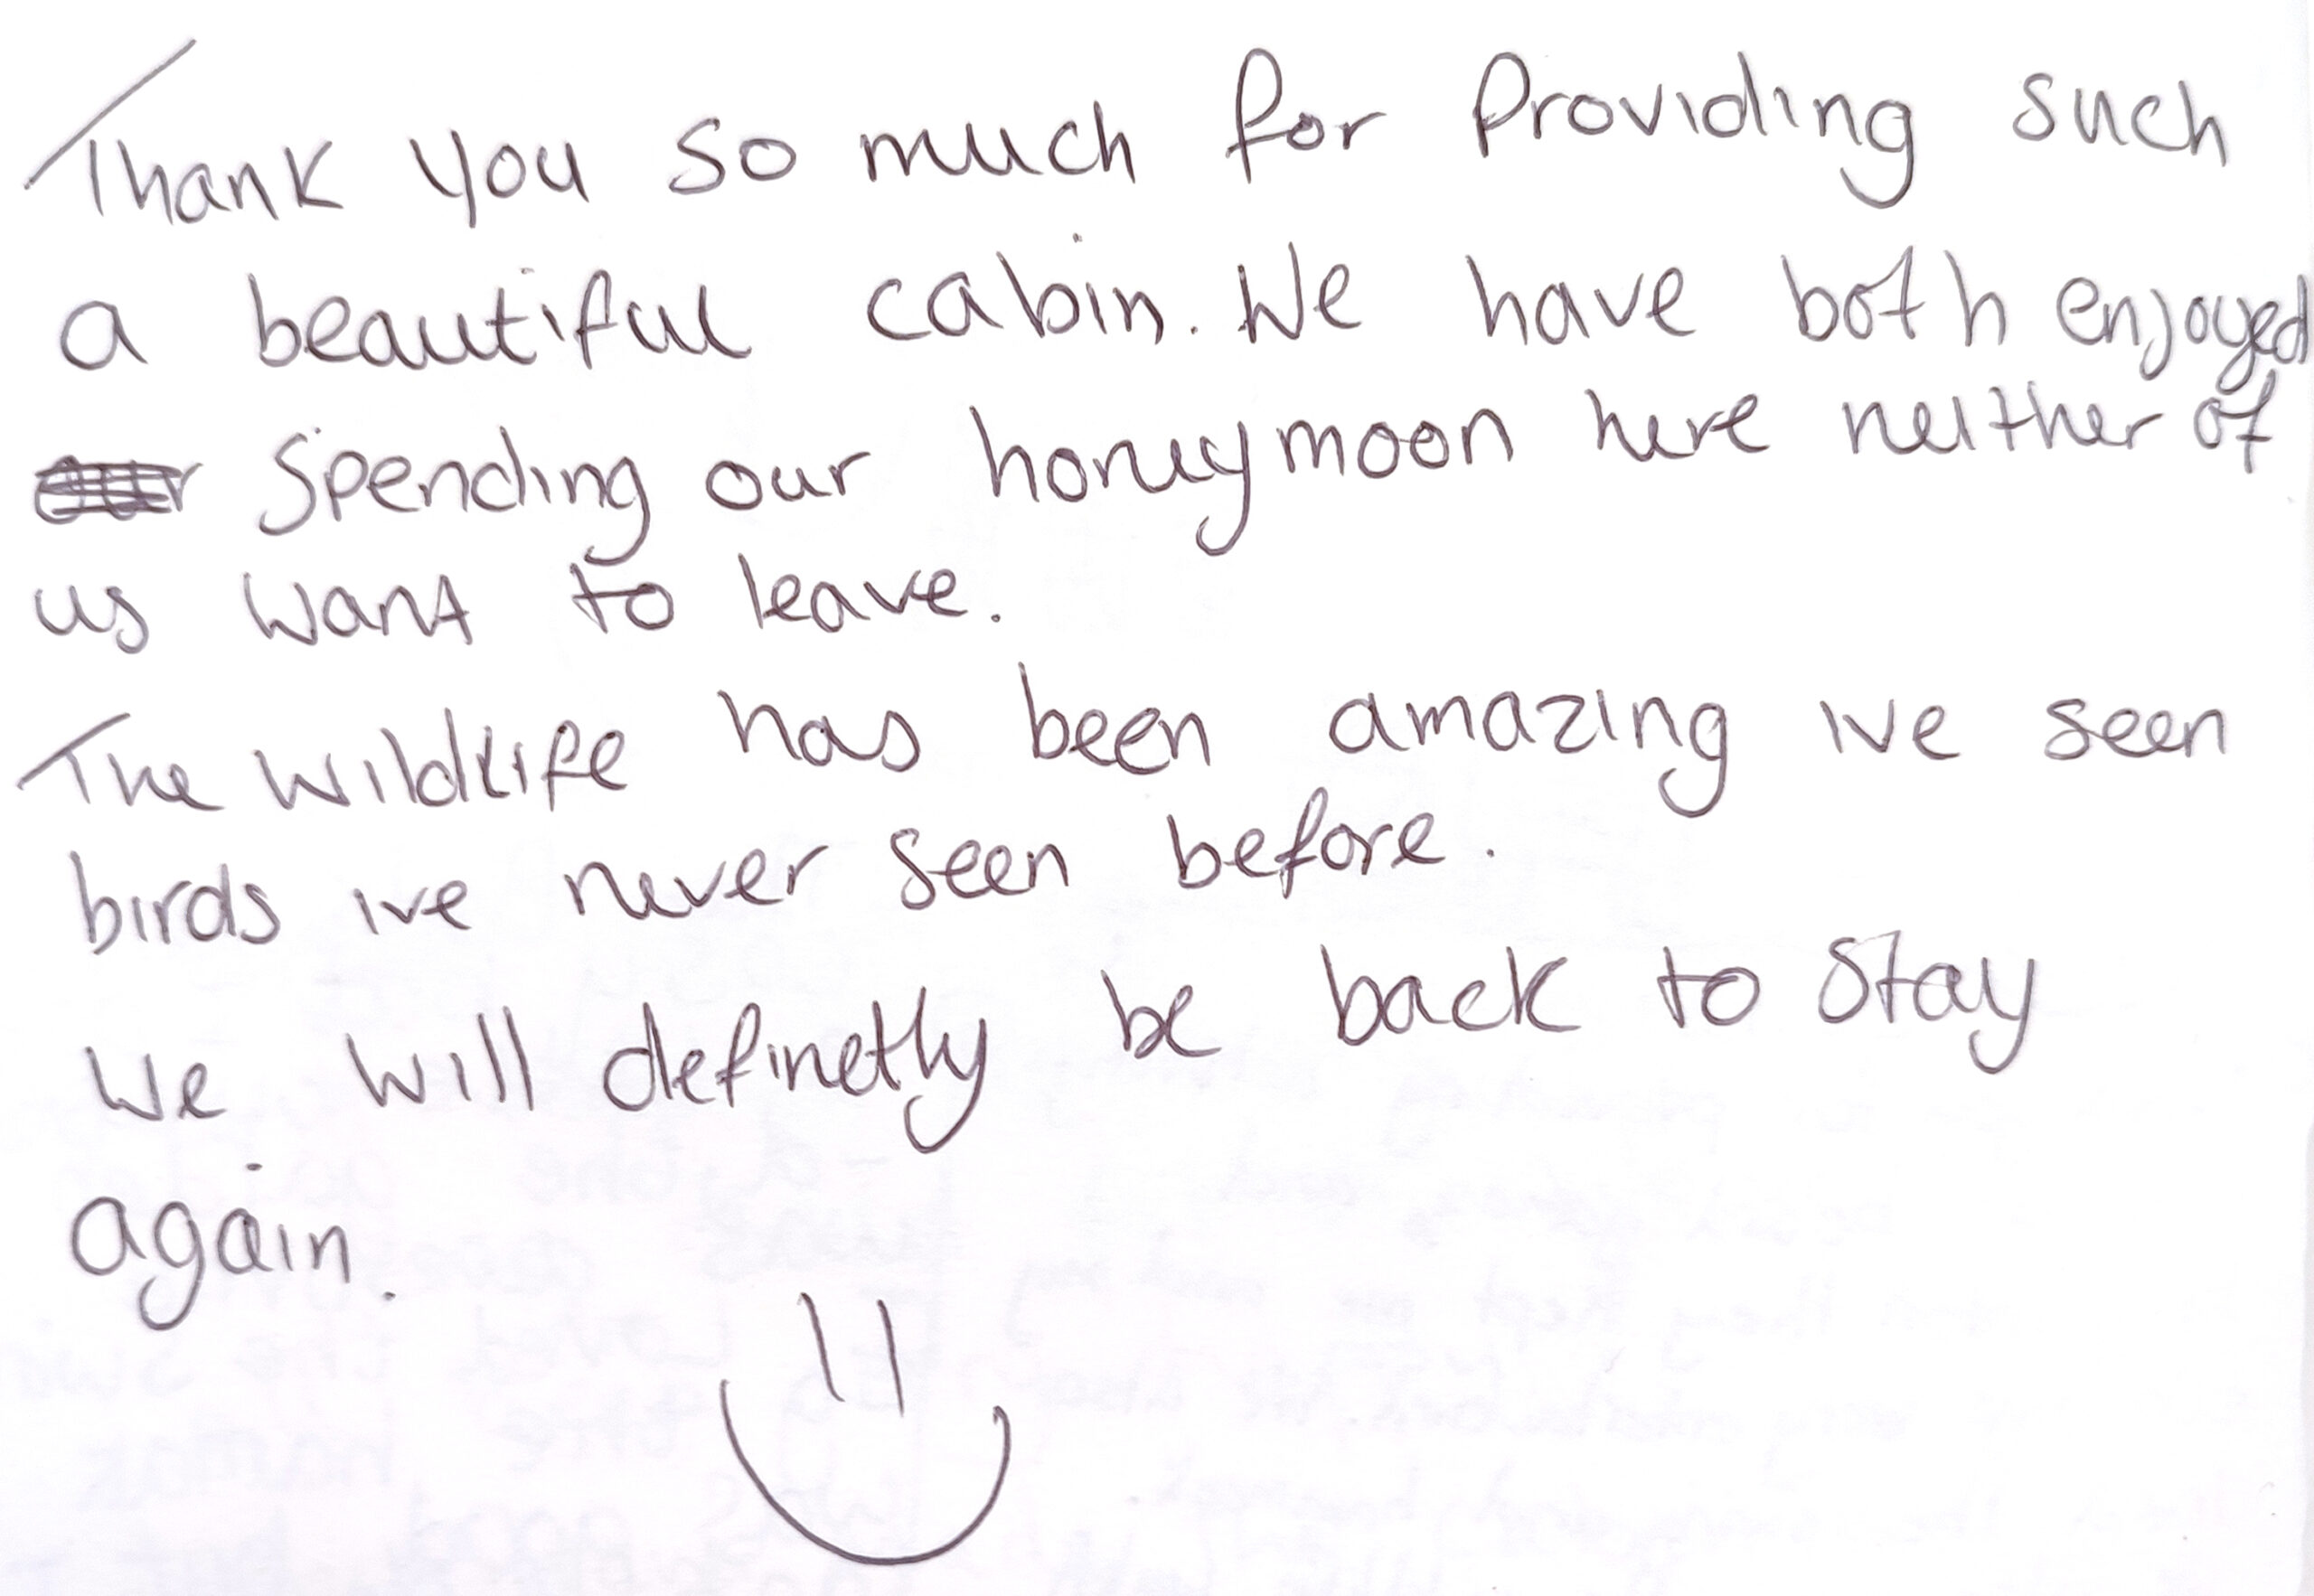 Thank you so much for Providing such
a beautiful cabin. We have both enjoyed
spending our honeymoon here neither of
us want to leave.
The wildlife has been amazing ive seen
birds ive never seen before.
We will definetly be back to stay
again.